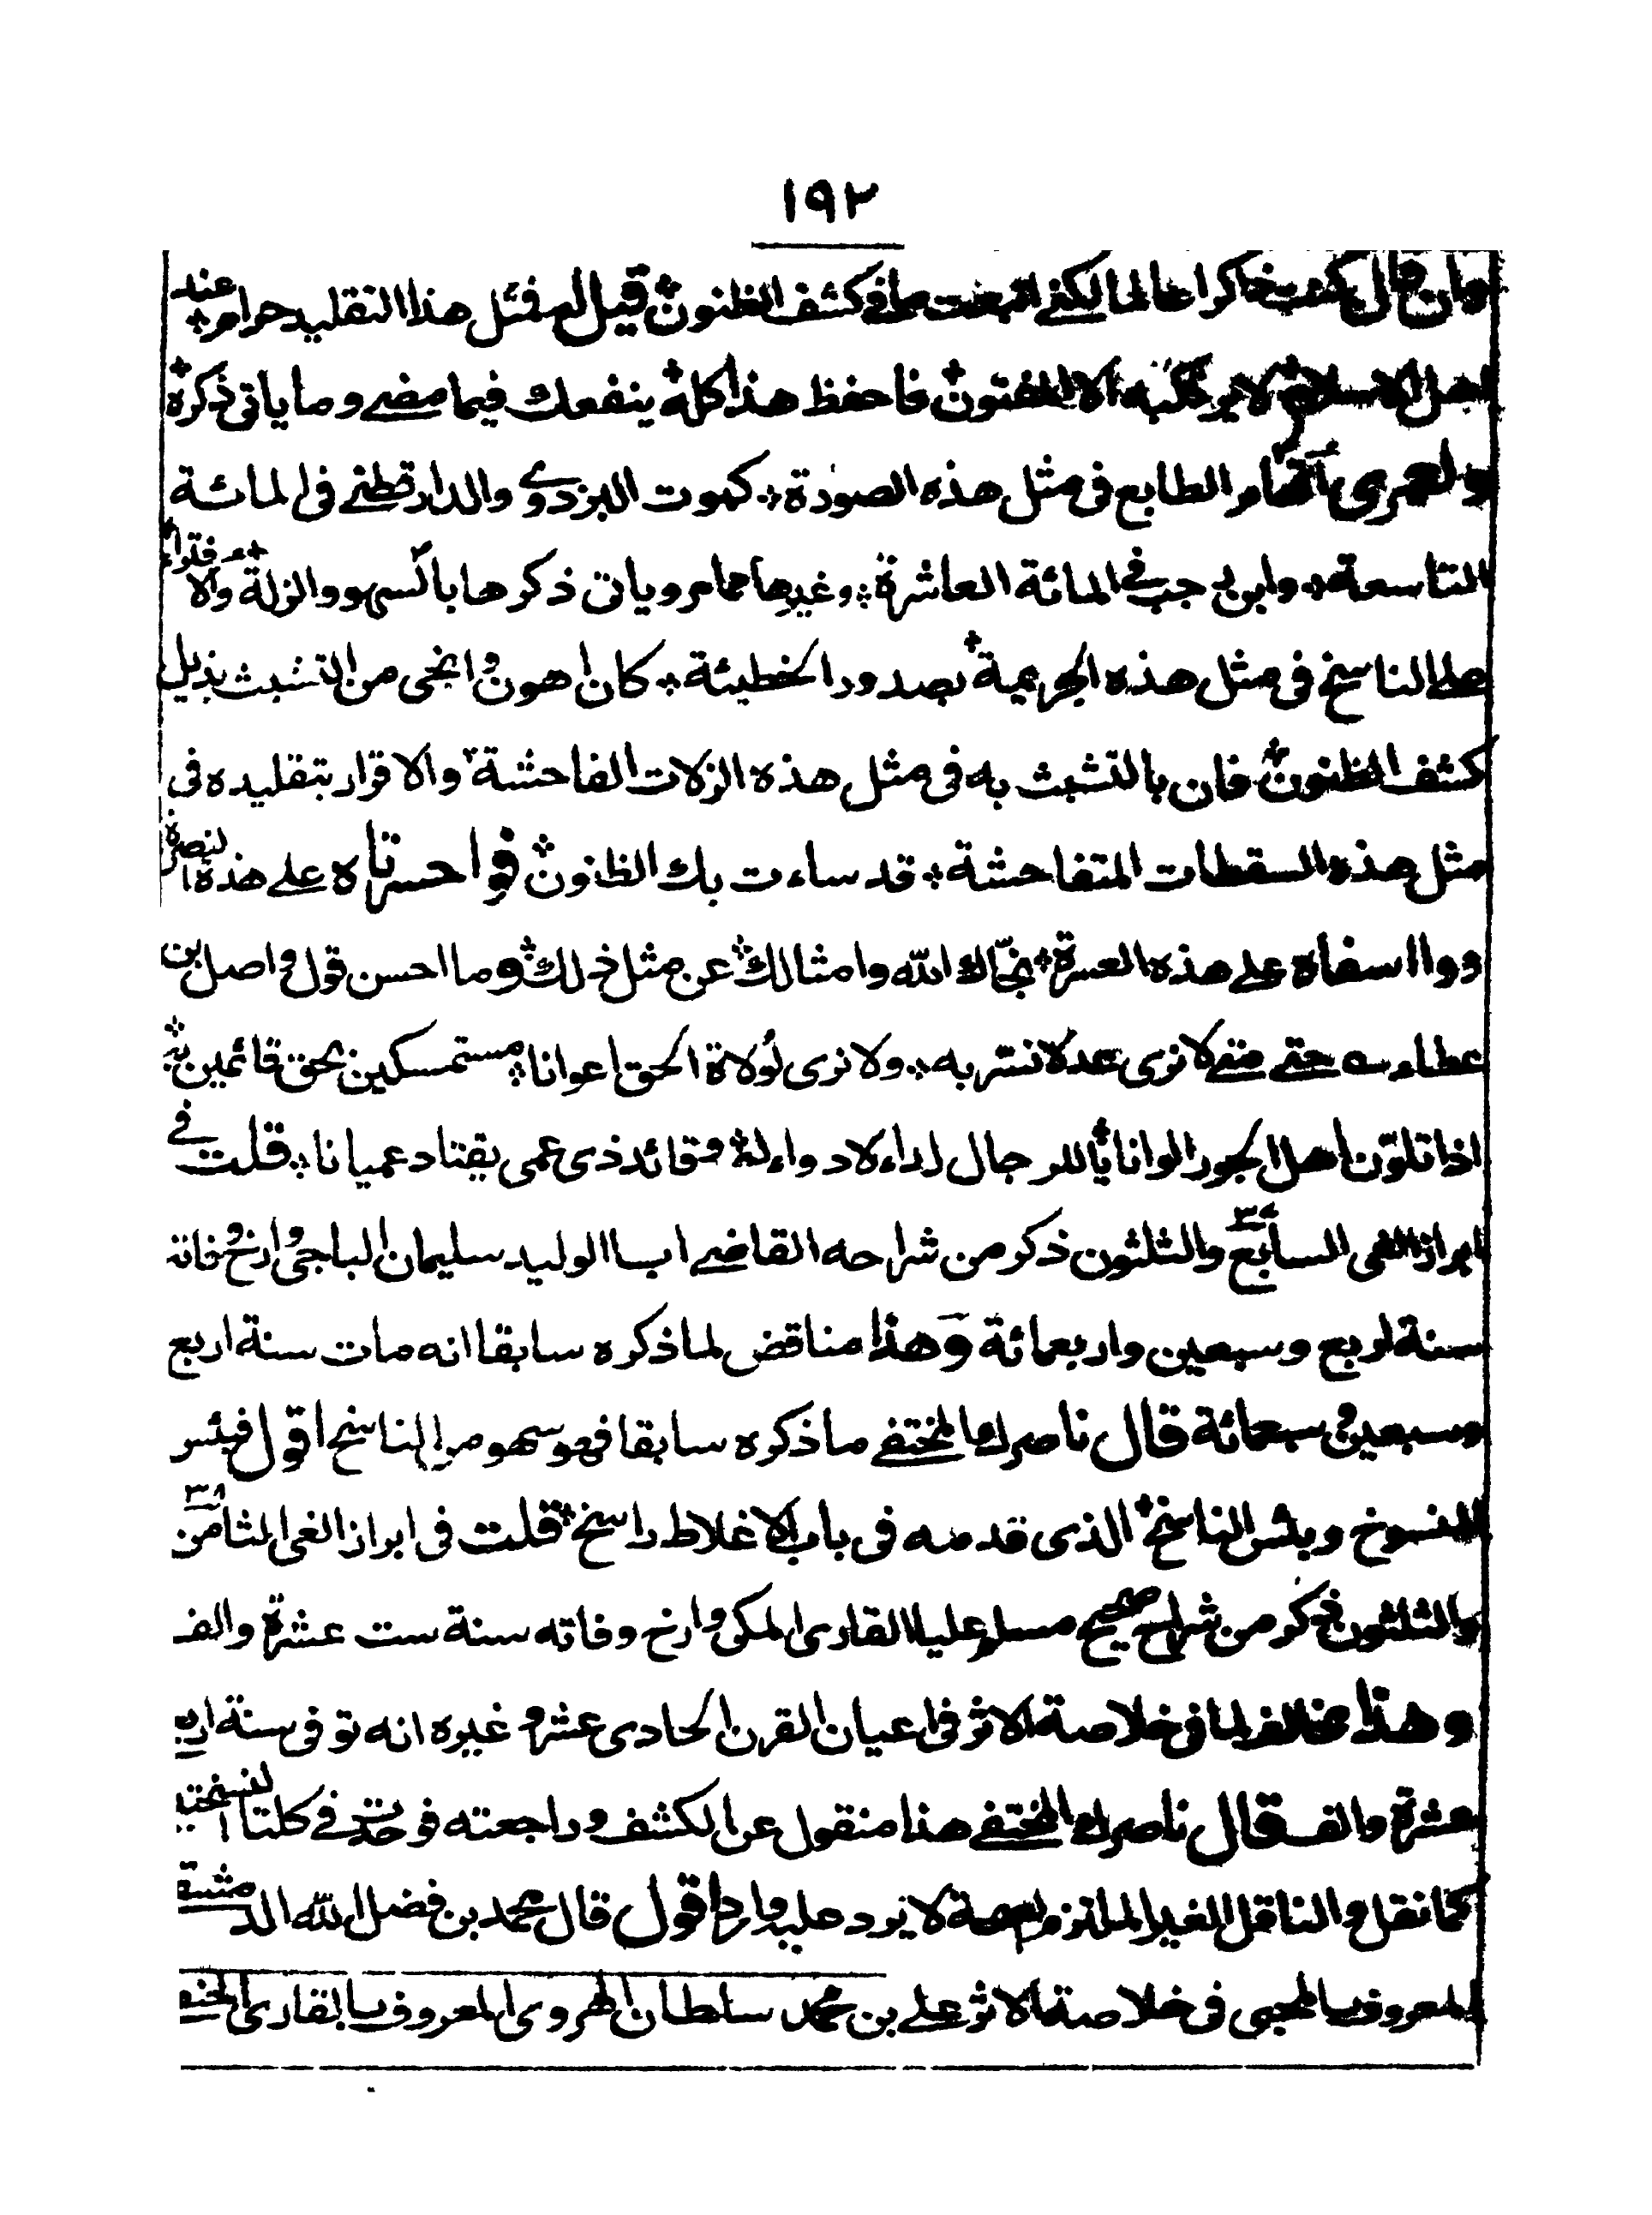 ١٩٢
وان قال كنت ذاكرا عالما لكنى اتبعت ما فى كشف الظنون قيل له فمثل هذا التقليد حرام عند
اهل الاسلام لا يرتكبه الا المفتون فاحفظ هذا كله ينفعك فيما مضى وما ياتى ذكره
ولعمرى اتهام الطابع فى مثل هذه الصورة كموت البزدوى والدارقطنى فى المائة
التاسعة وابن رجب فى المائة العاشرة وغيرها مما مر وياتى ذكرها بالسهو والزلة والافتراء
على الناسخ فى مثل هذه الجريمة بصدور الخطيئة كان اهون وانجى من التشبث بذيل
كشف الظنون فان بالتشبث به فى مثل هذه الزلات الفاحشة والاقرار بتقليده فى
مثل هذه السقطات المتفاحشة قد ساءت بك الظنون فوا حسرتاه على هذه النصرة
ووا اسفاه على هذه العسرة نجاك الله وامثالك عن مثل ذلك وما احسن قول واصل بن
عطاء حتى متى لا نرى عدلا نسر به ولا نرى لولاة الحق اعوانا مستمسكين بحق قائمين به
اذا تلون اهل الجور الوانا يا للرجال لداء لا دواء له وقائد ذى عمى يقتاد عميانا قلت فى
ابراز الغى السابع والثلثون ذكر من شراحه القاضى ابا الوليد سليمان الباجى وارخ وفاته
سنة اربع وسبعين واربعمائة وهذا مناقض لما ذكره سابقا انه مات سنة اربع
وسبعين وسبعمائة قال ناصرك المختفى ما ذكره سابقا فهو سهو من الناسخ اقول فبئس
المنسوخ وبئس الناسخ الذى قدمه فى باب الاغلاط راسخ قلت فى ابراز الغى الثامن ٣٨
والثلثون ذكر من شراح صحيح مسلم عليا القارى المكى وارخ وفاته سنة ست عشرة والف
وهذا مخالف لما فى خلاصة الاثر فى اعيان القرن الحادى عشر وغيره انه توفى سنة اربع
عشرة والف قال ناصرك المختفى هذا منقول عن الكشف وراجعته فوجدت فى كلتا النسختين
كما نقل والناقل الغير الملتزم لصحة لا يرد عليه وارد اقول قال محمد بن فضل الله الدمشقى
المعروف بالمحبى فى خلاصة الاثر على بن محمد سلطان الهروى المعروف بالقارى الحنفى